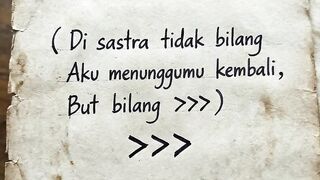 ( Di sastra tidak bilang
Aku menunggumu kembali,
But bilang >>>)
>>>